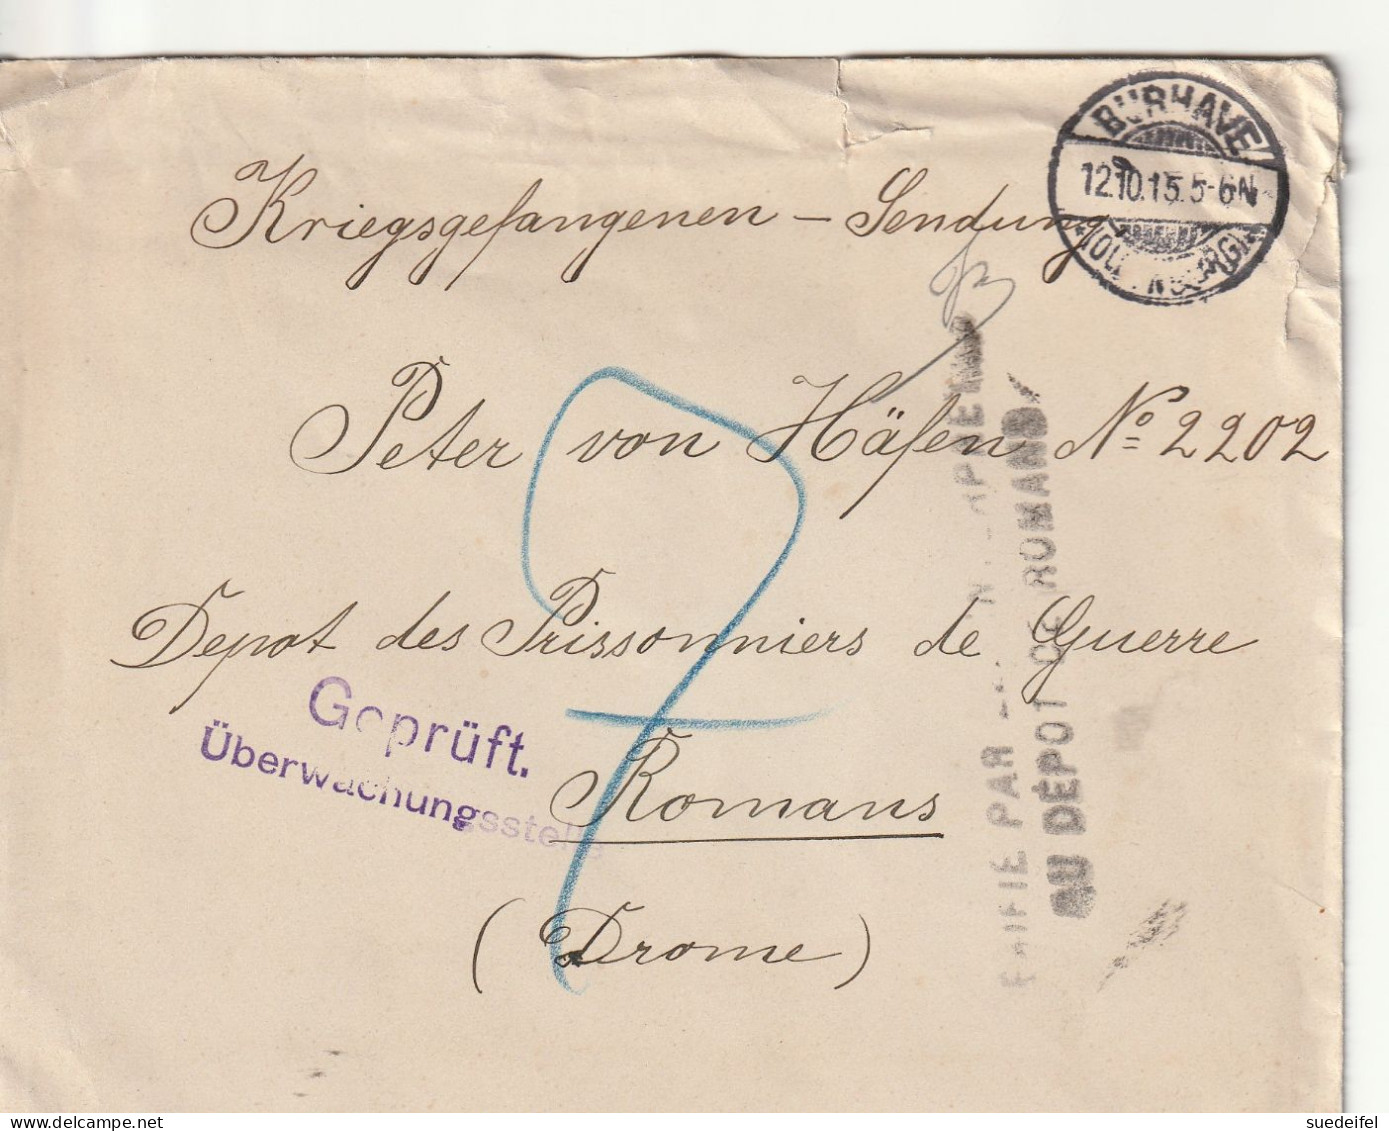 BURHAVE
12.10.15.5-6N
Kriegsgefangenen – Sendung
Peter von Häfen No 2202
Depot des Prissonniers de Guerre
Romans
(Drome)
Geprüft.
Überwachungsstelle
PAR
AU DÉPOT DE ROMANS
delcampe.net
suedeifel